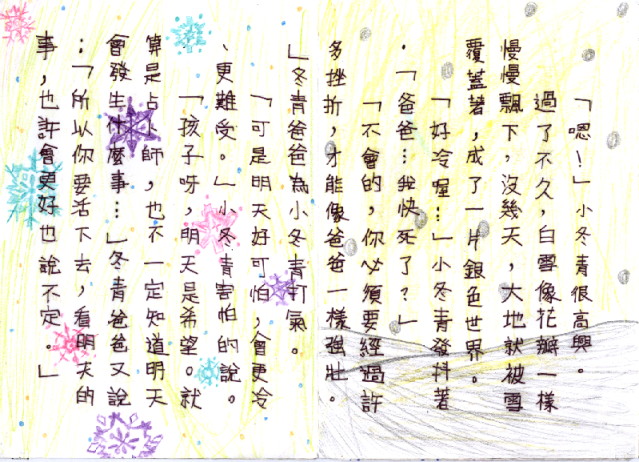 「嗯！」小冬青很高興。
過了不久，白雪像花瓣一樣
慢慢飄下，沒幾天，大地就被雪
覆蓋著，成了一片銀色世界。
「好冷喔…」小冬青發抖著
。「爸爸…我快死了？」
「不會的，你必須要經過許
多挫折，才能像爸爸一樣強壯。
」冬青爸爸為小冬青打氣。
「可是明天好可怕，會更冷
、更難受。」小冬青害怕的說。
「孩子呀，明天是希望。就
算是占卜師，也不一定知道明天
會發生什麼事…」冬青爸爸又說
：「所以你要活下去，看明天的
事，也許會更好也說不定。」